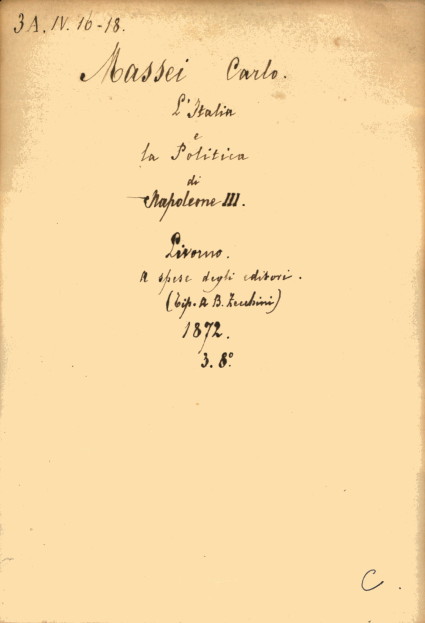 3A. IV. 16-18.
Massei Carlo.
L'Italia
e
la Politica
di
Napoleone III.
Livorno.
A spese degli editori.
(Tip. A B. Zecchini)
1872.
3. 8º
C.